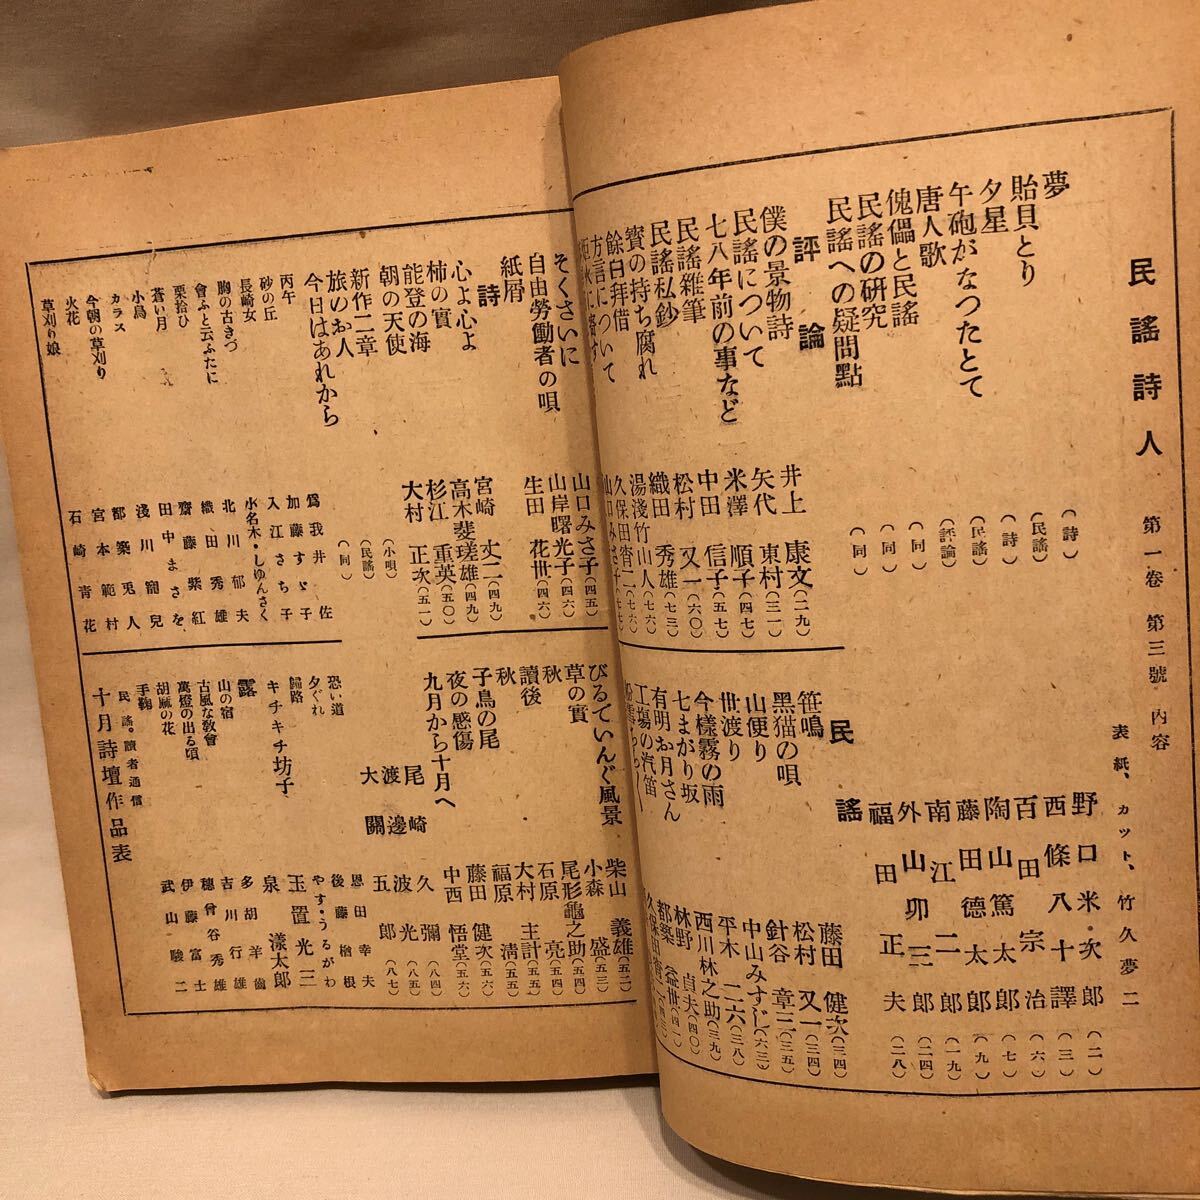 民謠詩人 第一卷 第三號 内容
表紙、カット、竹久夢二
夢 (詩) 野口米次郎 (二)
貽貝とり (民謠) 西條八十譯 (三)
夕星 (詩) 百田宗治 (六)
午砲がなつたとて (民謠) 陶山篤太郎 (七)
唐人歌 (評論) 藤田德太郎 (九)
傀儡と民謠 (同) 南江二郎 (一九)
民謠の研究 (同) 外山卯三郎 (二四)
民謠への疑問點 (同) 福田正夫 (二八)
評論
僕の景物詩 井上康文(二九)
民謠について 矢代東村(三一)
七八年前の事など 米澤順子(四七)
民謠雜筆 中田信子(五七)
民謠私鈔 松村又一(六〇)
寳の持ち腐れ 織田秀雄(七三)
餘白拜借 湯淺竹山人(七六)
方言について 久保田宵二(七六)
山口みさ子(七七)
民謠
笹鳴 藤田健次(三四)
黑猫の唄 松村又一(三四)
山便り 針谷章三(三五)
世渡り 中山みすじ(六三)
今樣霧の雨 平木二六(三八)
七まがり坂 西川林之助(三九)
有明お月さん 林野貞夫(四〇)
工塲の汽笛 都築益世(四一)
久保田宵二
そくさいに 山口みさ子(四五)
自由勞働者の唄 山岸曙光子(四六)
紙屑 生田花世(四六)
詩
心よ心よ 宮崎丈二(四九)
柿の實 高木斐瑳雄(四九)
能登の海 杉江重英(五〇)
朝の天使 大村正次(五一)
びるていんぐ風景 柴山義雄(五二)
草の實 小森盛(五三)
秋 尾形龜之助(五四)
讀後 石原亮(五四)
秋 大村主計(五四)
子鳥の尾 福原淸(五五)
夜の感傷 藤田健次(五五)
九月から十月へ 中西悟堂(五六)
新作二章 (小唄) 尾崎久彌(八四)
旅のお人 (民謠) 渡邊波光(八五)
今日はあれから (同) 大關五郎(八七)
丙午 爲我井佐
砂の丘 加藤すゞ子
長崎女 入江さち子
胸の古きづ 水名木・しゆんさく
會ふと云ふたに 北川郁夫
栗拾ひ 織田秀雄
蒼い月 齋藤紫紅
小鳥 田中まさを
カラス 淺川寵兒
今朝の草刈り 都築兎人
火花 宮本範村
草刈り娘 石崎靑花
恐い道 恩田幸夫
夕ぐれ 後藤楢根
歸路 やす・うるがわ
キチキチ坊子 玉置光三
露 泉漾太郎
山の宿 多胡羊齒
古風な敎會 吉川行雄
萬燈の出る頃 穗曾谷秀雄
胡麻の花 伊藤富士
手鞠 武山駿二
民謠。讀者通信
十月詩壇作品表